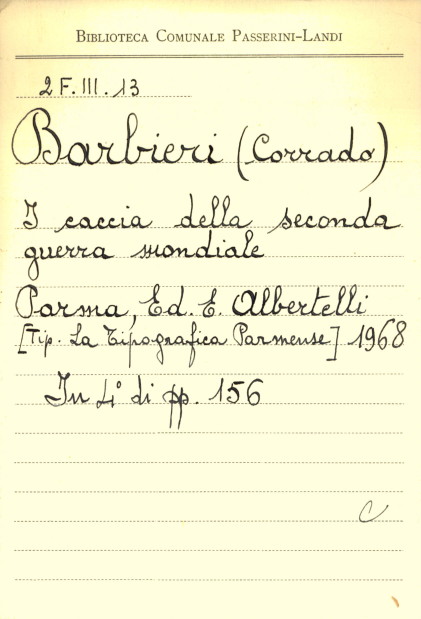 BIBLIOTECA COMUNALE PASSERINI-LANDI
2 F. III. 13
Barbieri (Corrado)
I caccia della seconda
guerra mondiale
Parma, Ed. E. Albertelli
[Tip. La Tipografica Parmense] 1968
In 4° di pp. 156
C